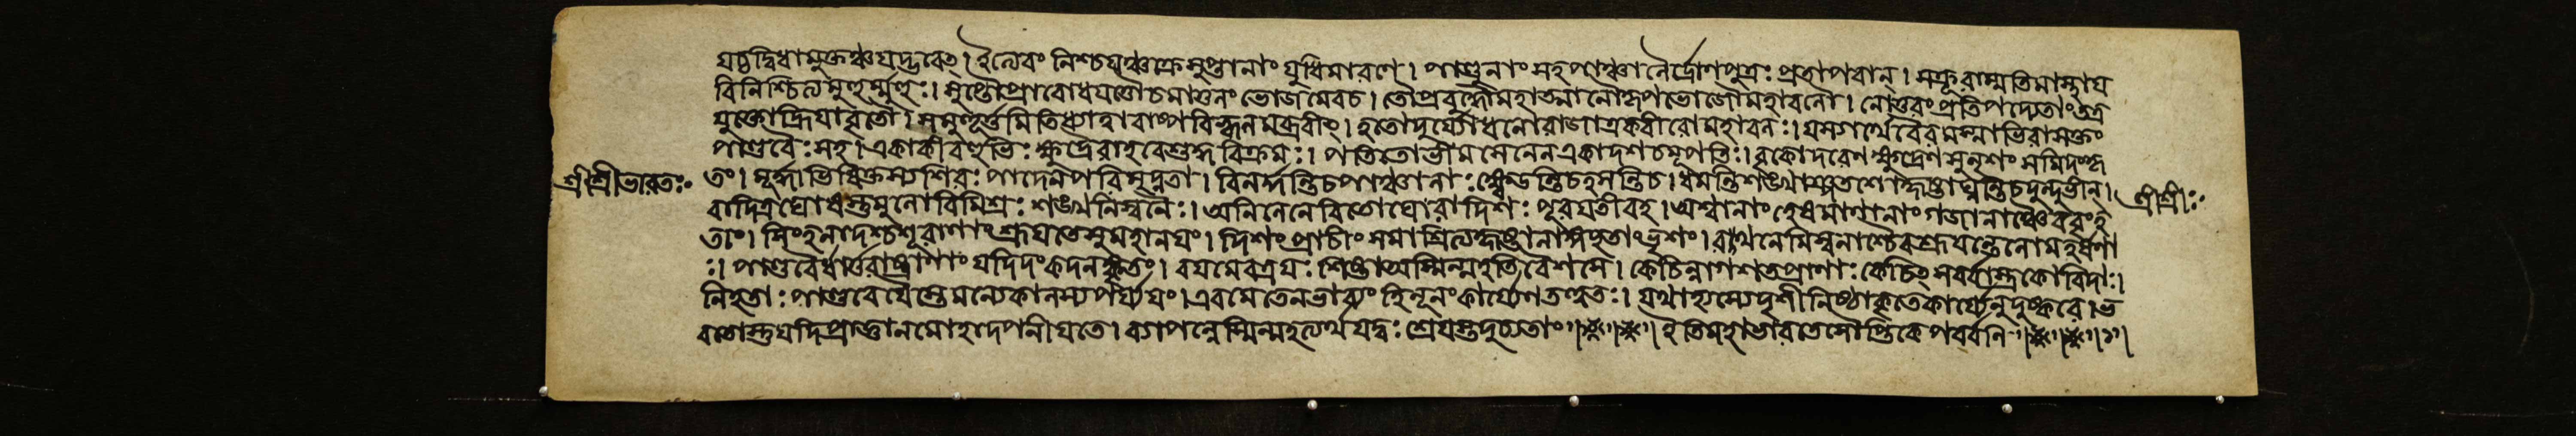 যষ্টদ্বিধামুক্তঞ্চযদ্ভবেৎ। ইত্যেবং নিশ্চযঞ্চক্রে সুপ্তানাং যুধিমারণে। পাণ্ডুনাং সহপাঞ্চালৈর্দ্রোণপুত্রঃ প্রতাপবান্। সক্রূরাম্মতিমাস্থায
বিনিশ্চিত্যমুহুর্মুহুঃ। সুপ্তৌপ্রাবোধযত্তৌচমাতুলং ভোজমেবচ। তৌপ্রবুদ্ধৌমহাত্মানৌকৃপভোজৌমহাবলৌ। নোত্তরংপ্রতিপদ্যেতাংতত্র
যুক্তোহ্রিযাবৃতৌ। সমুহূর্ত্তমিতিধ্যাত্বাবাষ্পবিহ্বলমব্রবীৎ। হতোদুর্য্যোধনোরাজাএকবীরোমহাবলঃ। যস্যার্থেবৈরমস্মাভিরাসক্তং
পাণ্ডবৈঃ সহ। একাকীবহুভিঃ ক্ষুদ্রৈরাহবেশুদ্ধবিক্রমঃ। পাতিতোভীমসেনেনএকাদশচমূপতিঃ। বৃকোদরেণক্ষুদ্রেণসুনৃশংসমিদংকৃ
শ্রীশ্রীভারতঃ
তং। মূর্দ্ধাভিষিক্তস্যশিরঃ পাদেনপরিমৃদ্নতা। বিনর্দ্দন্তিচপাঞ্চালাঃ ক্ষ্বেডন্তিচহসন্তিচ। ধমন্তিশঙ্খাঞ্শতশোহৃষ্টাঘ্নন্তিচদুন্দুভীন্।
শ্রীশ্রীঃ
বাদিত্রঘোষস্তুমুলোবিমিশ্রঃ শঙ্খনিস্বনৈঃ। অনিলেনেরিতোঘোরোদিশঃ পূরযতীবহ। অশ্বানাং হ্রেষমাণানাং গজানাঞ্চৈববৃংহ
তাং। সিংহনাদশ্চশূরাণাংশ্রূযতেসুমহানযং। দিশংপ্রাচীংসমাশ্রিত্যহৃষ্টানাঙ্গচ্ছতাংভৃশং। রথনেমিস্বনাশ্চৈবশ্রূযন্তেলোমহর্ষণা
ঃ। পাণ্ডবৈর্ধার্ত্তরাষ্ট্রাণাং যদিদংকদনঙ্কৃতং। বযমেবত্রযঃ শিষ্টাঅস্মিন্মহতিবৈশসে। কেচিন্নাগশতপ্রাণাঃ কেচিৎসর্ব্বাস্ত্রকোবিদাঃ।
নিহতাঃ পাণ্ডবেযৈস্তেমন্যেকালস্যপর্য্যযং। এবমেতেনভাব্যং হিনূনংকার্য্যেণতত্ত্বতঃ। যথাহ্যস্যেদৃশীনিষ্ঠাকৃতেকার্য্যেসুদুষ্করে। ভ
বতোস্তুযদিপ্রাজ্ঞানমোহাদপনীযতে। ব্যাপন্নেস্মিন্মহত্যর্থেযদ্বঃ শ্রেযস্তদুচ্যতাং॥ ॥ইতিমহাভারতেসৌপ্তিকেপর্ব্বনি॥ ॥১॥